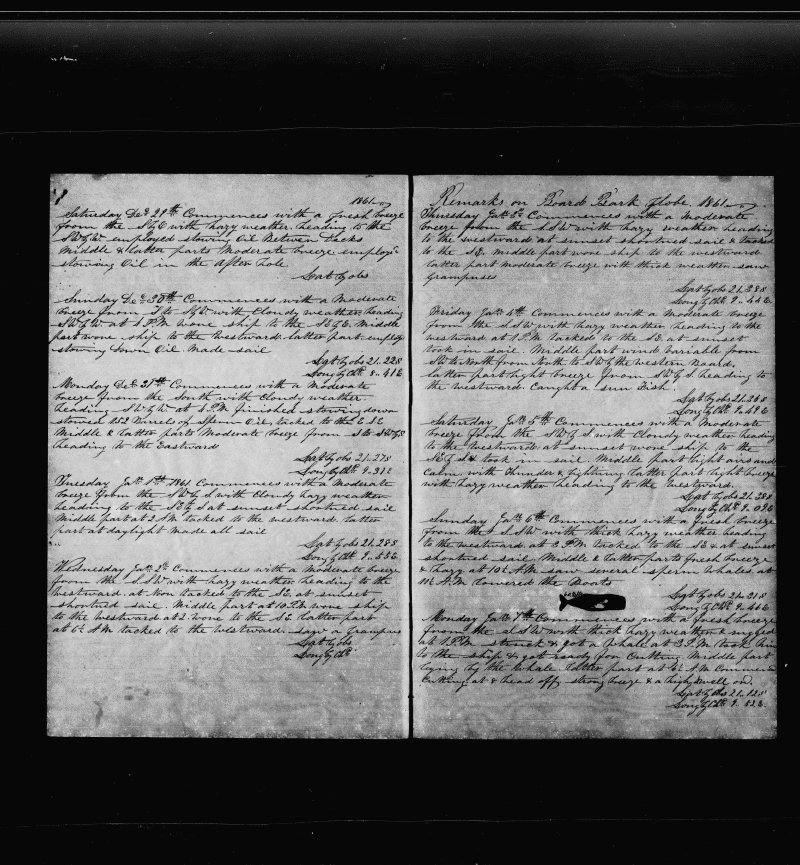 1861
Saturday Dec 29th Commences with a fresh breeze
from the S by E with hazy weather. heading to the
SW by W employed stowing Oil Between Decks
Middle & latter parts Moderate breeze employd
stowing Oil in the After hole
Lat by obs
Sunday Dec 30th Commences with a Moderate
breeze from to S by W with Cloudy weather heading
SW by W at 1 P.M wore ship to the SE by E. Middle
part wore ship to the Westward. latter part employ
stowing down Oil. Made sail
Lat by obs 21.22 S
Long by Chr 8..41 E
Monday Dec 31st Commences with a Moderate
breeze from the South with Cloudy weather.
heading SW by W at 4 P.M finished stowing down
stowed 252 Barrels of Sperm Oil, tacked to the ESE
Middle & latter parts Moderate breeze from S to SW by S
heading to the Eastward
Lat by obs 21.27 S
Long by Chr 9..31 E
Tuesday Jan 1st 1861 Commences with a Moderate
breeze from the SW by S with Cloudy hazy weather
heading to the SE by S at sunset shortned sail
Middle part at 2 AM tacked to the westward latter
part at daylight made all sail
Lat by obs 21.28 S
Long by Chr 9..55 E
Wednesday Jan 2d Commences with a Moderate breeze
from the SSW with hazy weather heading to the
westward. at Non tacked to the SE at sunset
shortned sail. Middle part at 10 P.M wore ship
to the westward at 2 wore to the SE latter part
at 6½ AM tacked to the westward. saw a Grampus
Lat by obs
Long by Chr
Remarks on Board Bark Globe. 1861
Thursday Jan 3d Commences with a Moderate
breeze from the SSW with hazy weather heading
to the westward at sunset shortned sail & tacked
to the SE. middle part wore ship to the westward
latter part moderate breeze with thick weather saw
Grampuses
Lat by obs 21.28 S
Long by Chr 9..44 E
Friday Jan 4th Commences with a Moderate breeze
from the SSW with hazy weather heading to the
westward at 1 P.M tacked to the SE. at sunset
took in sail. Middle part wind variable from
SW to North from North to SW by the western Board.
latter part light breeze from SW by S. heading to
the westward. Caught a sun Fish.
Lat by obs 21.28 S
Long by Chr 9..49 E
Saturday Jan 5th Commences with a Moderate
breeze from the SW by S with Cloudy weather heading
to the westward at sunset wore ship to the
SE by S & took in sail. Middle part light airs and
Calm with thunder & lightning latter part light breeze
with hazy weather heading to the westward.
Lat by obs 21.28 S
Long by Chr 9..09 E
Sunday Jan 6th Commences with a fresh breeze
from the SSW with thick hazy weather heading
to the westward. at 3 P.M tacked to the SE & at sunset
shortned sail Middle & latter parts fresh breeze
& hazy. at 10½ A.M saw several Sperm Whales at
11½ A.M lowered the Boats
Lat by obs 21..21 S
Long by Chr 9..46 E
Monday Jan 7th Commences with a fresh breeze
from the SSW with thick hazy weather & rugged
at 1 P.M struck & got a Whale at 3 P.M took him
to the ship & got ready for Cutting Middle part
lying by the Whale latter part at 4½ A.M Commenced
Cutting at & head off, strong breeze & a high swell on.
Lat by obs 21..12 S
Long by Chr 9..52 E